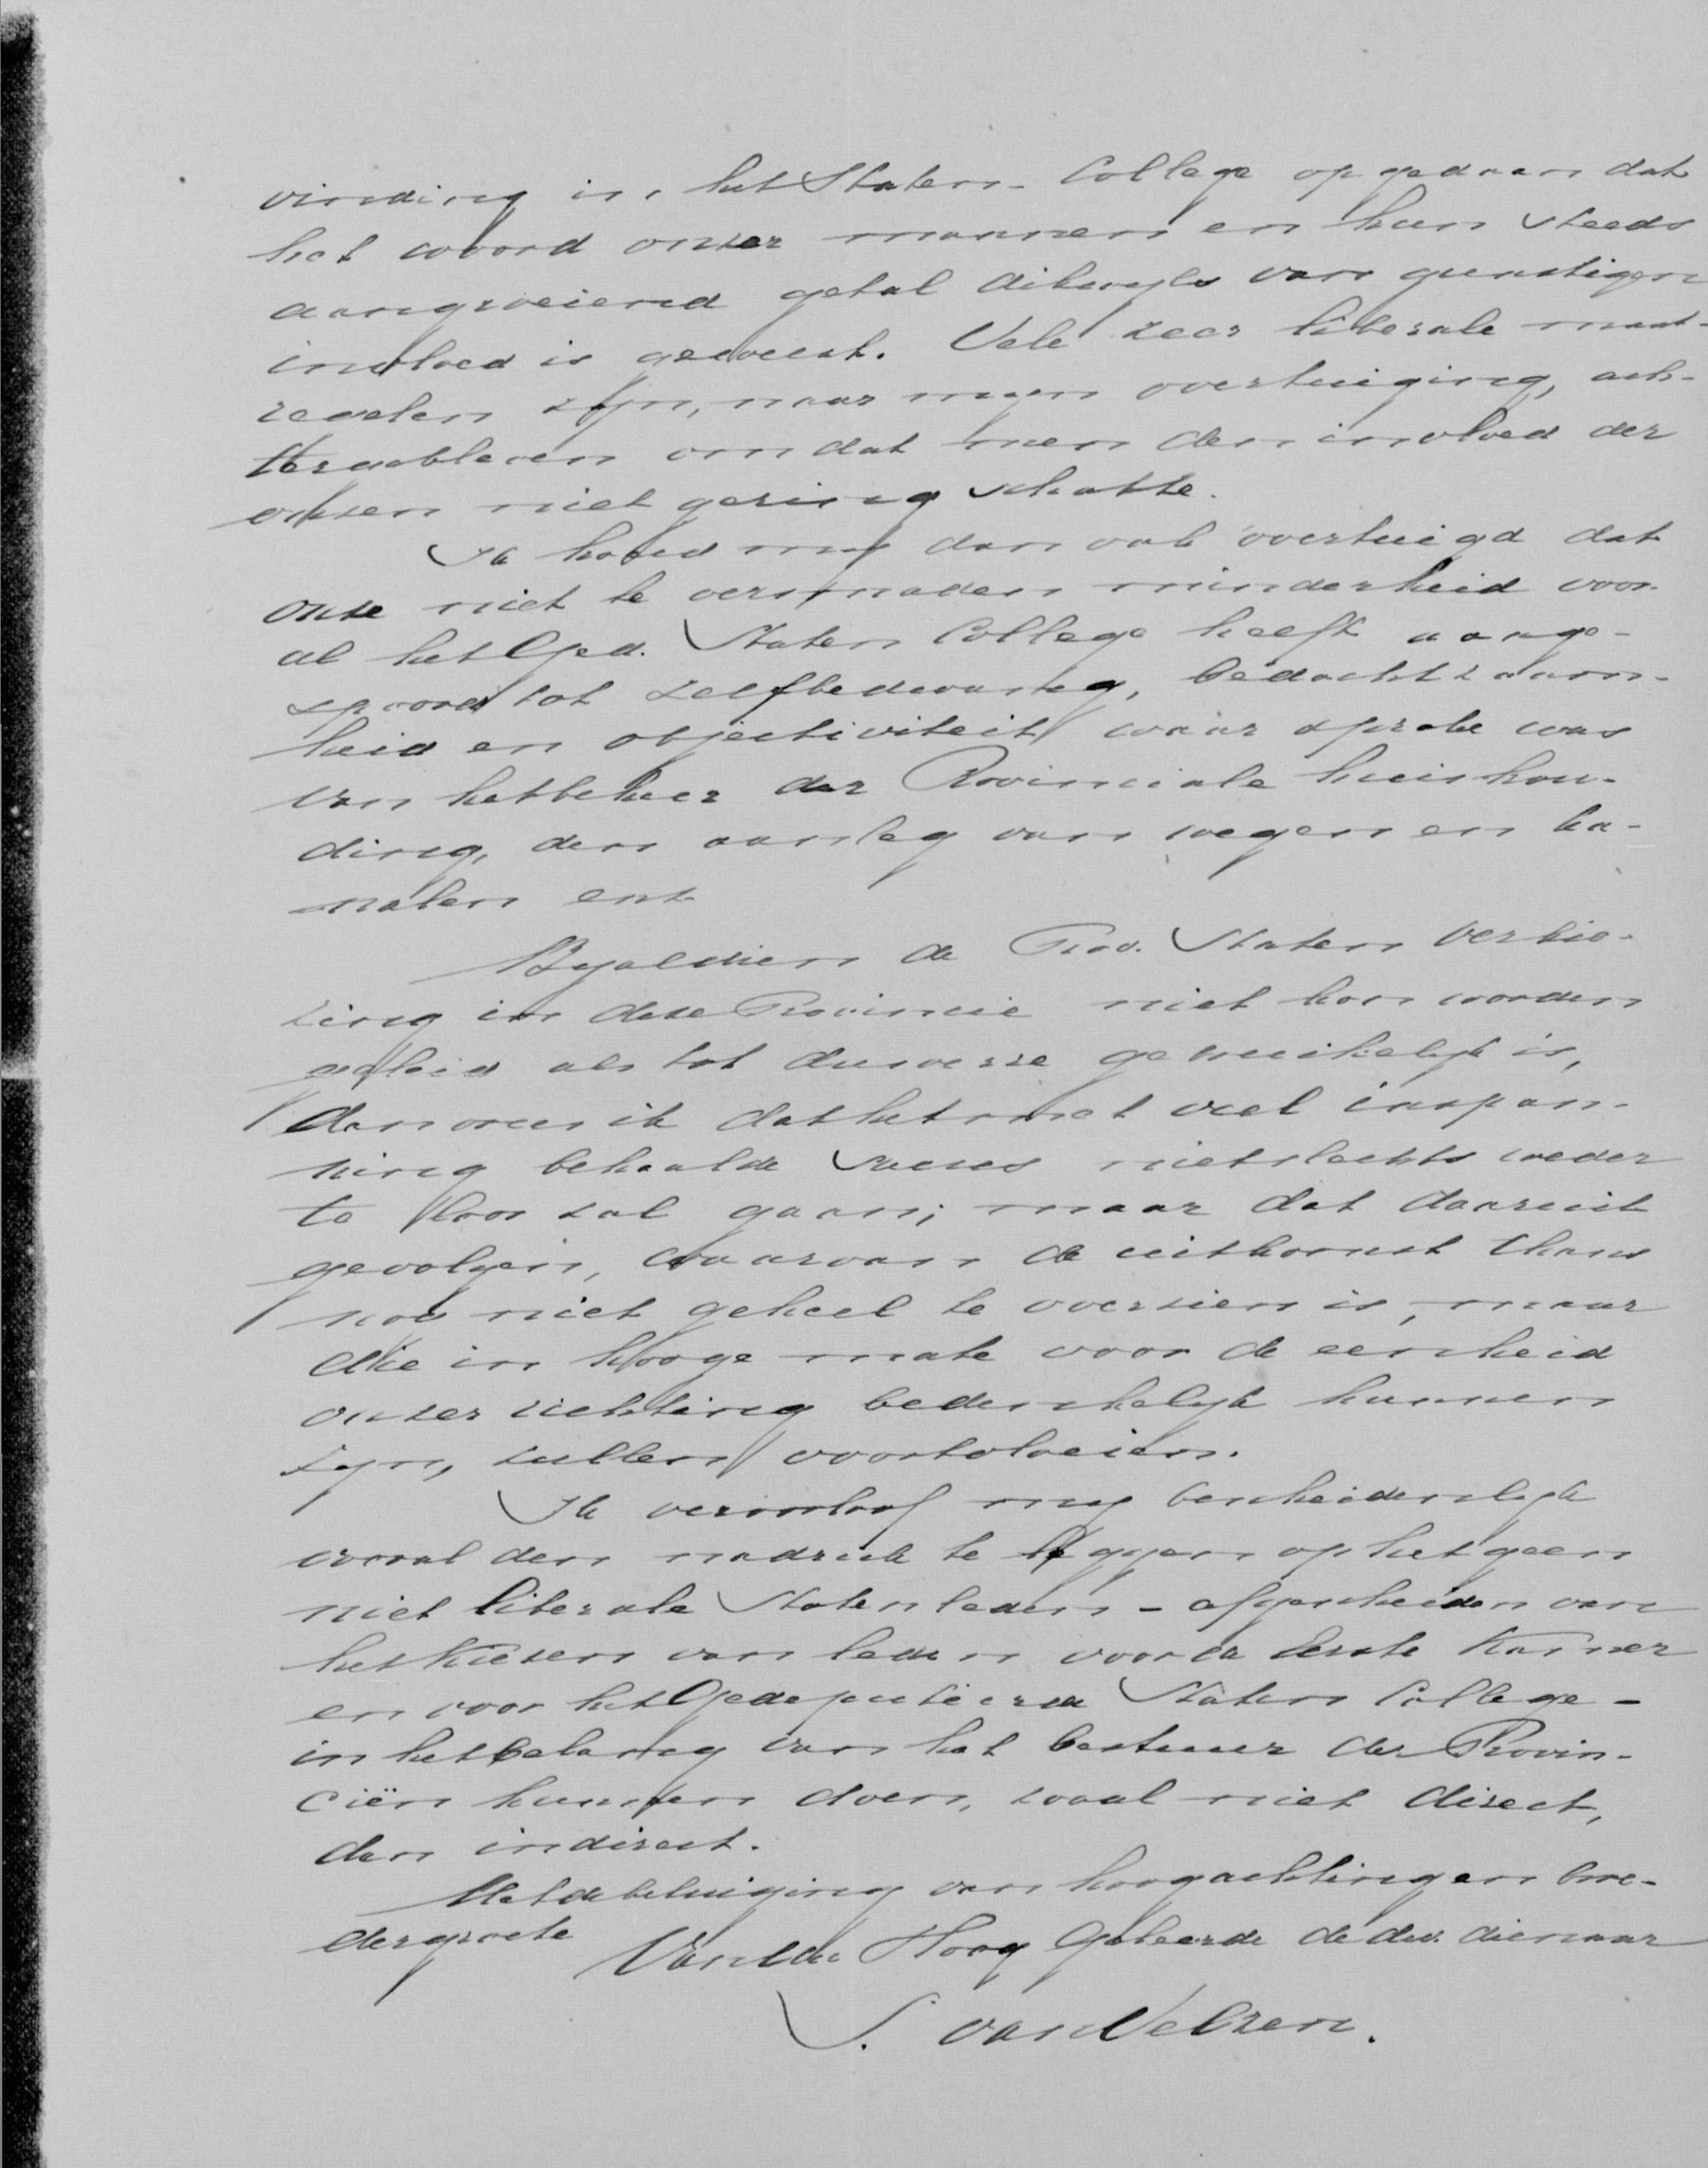 vinding in het Staten-College opgedaan dat
het woord onzer mannen en hun steeds
aangroeiend getal dikwyls van gunstigen
invloed is geweest. Vele zeer liberale maat-
regelen zyn, naar myn overtuiging, ach-
tergebleven omdat men den invloed der
onzen niet gering schatte.
Ik houd my dan ook overtuigd dat
onze niet te versmaden minderheid voor-
al het Ged. Staten College heeft aange-
spoord tot zelfbedwang, bedachtzaam-
heid en objectiviteit waar sprake was
van het beheer der Provinciale huishou-
ding, den aanleg van wegen en ka-
nalen enz.
Byaldien de Prov. Staten verkie-
zing in deze Provincie niet kon worden
geleid als tot dusverre gebruikelyk is,
dan vrees ik dat het met veel inspan-
ning behaalde succes niet slechts weder
te loor zal gaan; maar dat daaruit
gevolgen, waarvan de uitkomst thans
nog niet geheel te overzien is, maar
die in hooge mate voor de eenheid
onzer richting bedenkelyk kunnen
zyn, zullen voortvloeien.
Ik veroorloof my bescheidenlyk
vooral den nadruk te leggen op hetgeen
niet liberale Statenleden - afgescheiden van
het kiezen van leden voor de Eerste Kamer
en voor het Gedeputeerde Staten College -
in het belang van het bestuur der Provin-
ciën kunnen doen, zooal niet direct,
dan indirect.
Met de betuiging van hoogachting en broe-
dergroete
Van Uw Hoog Geleerde de dw. dienaar
S. van Velzen.